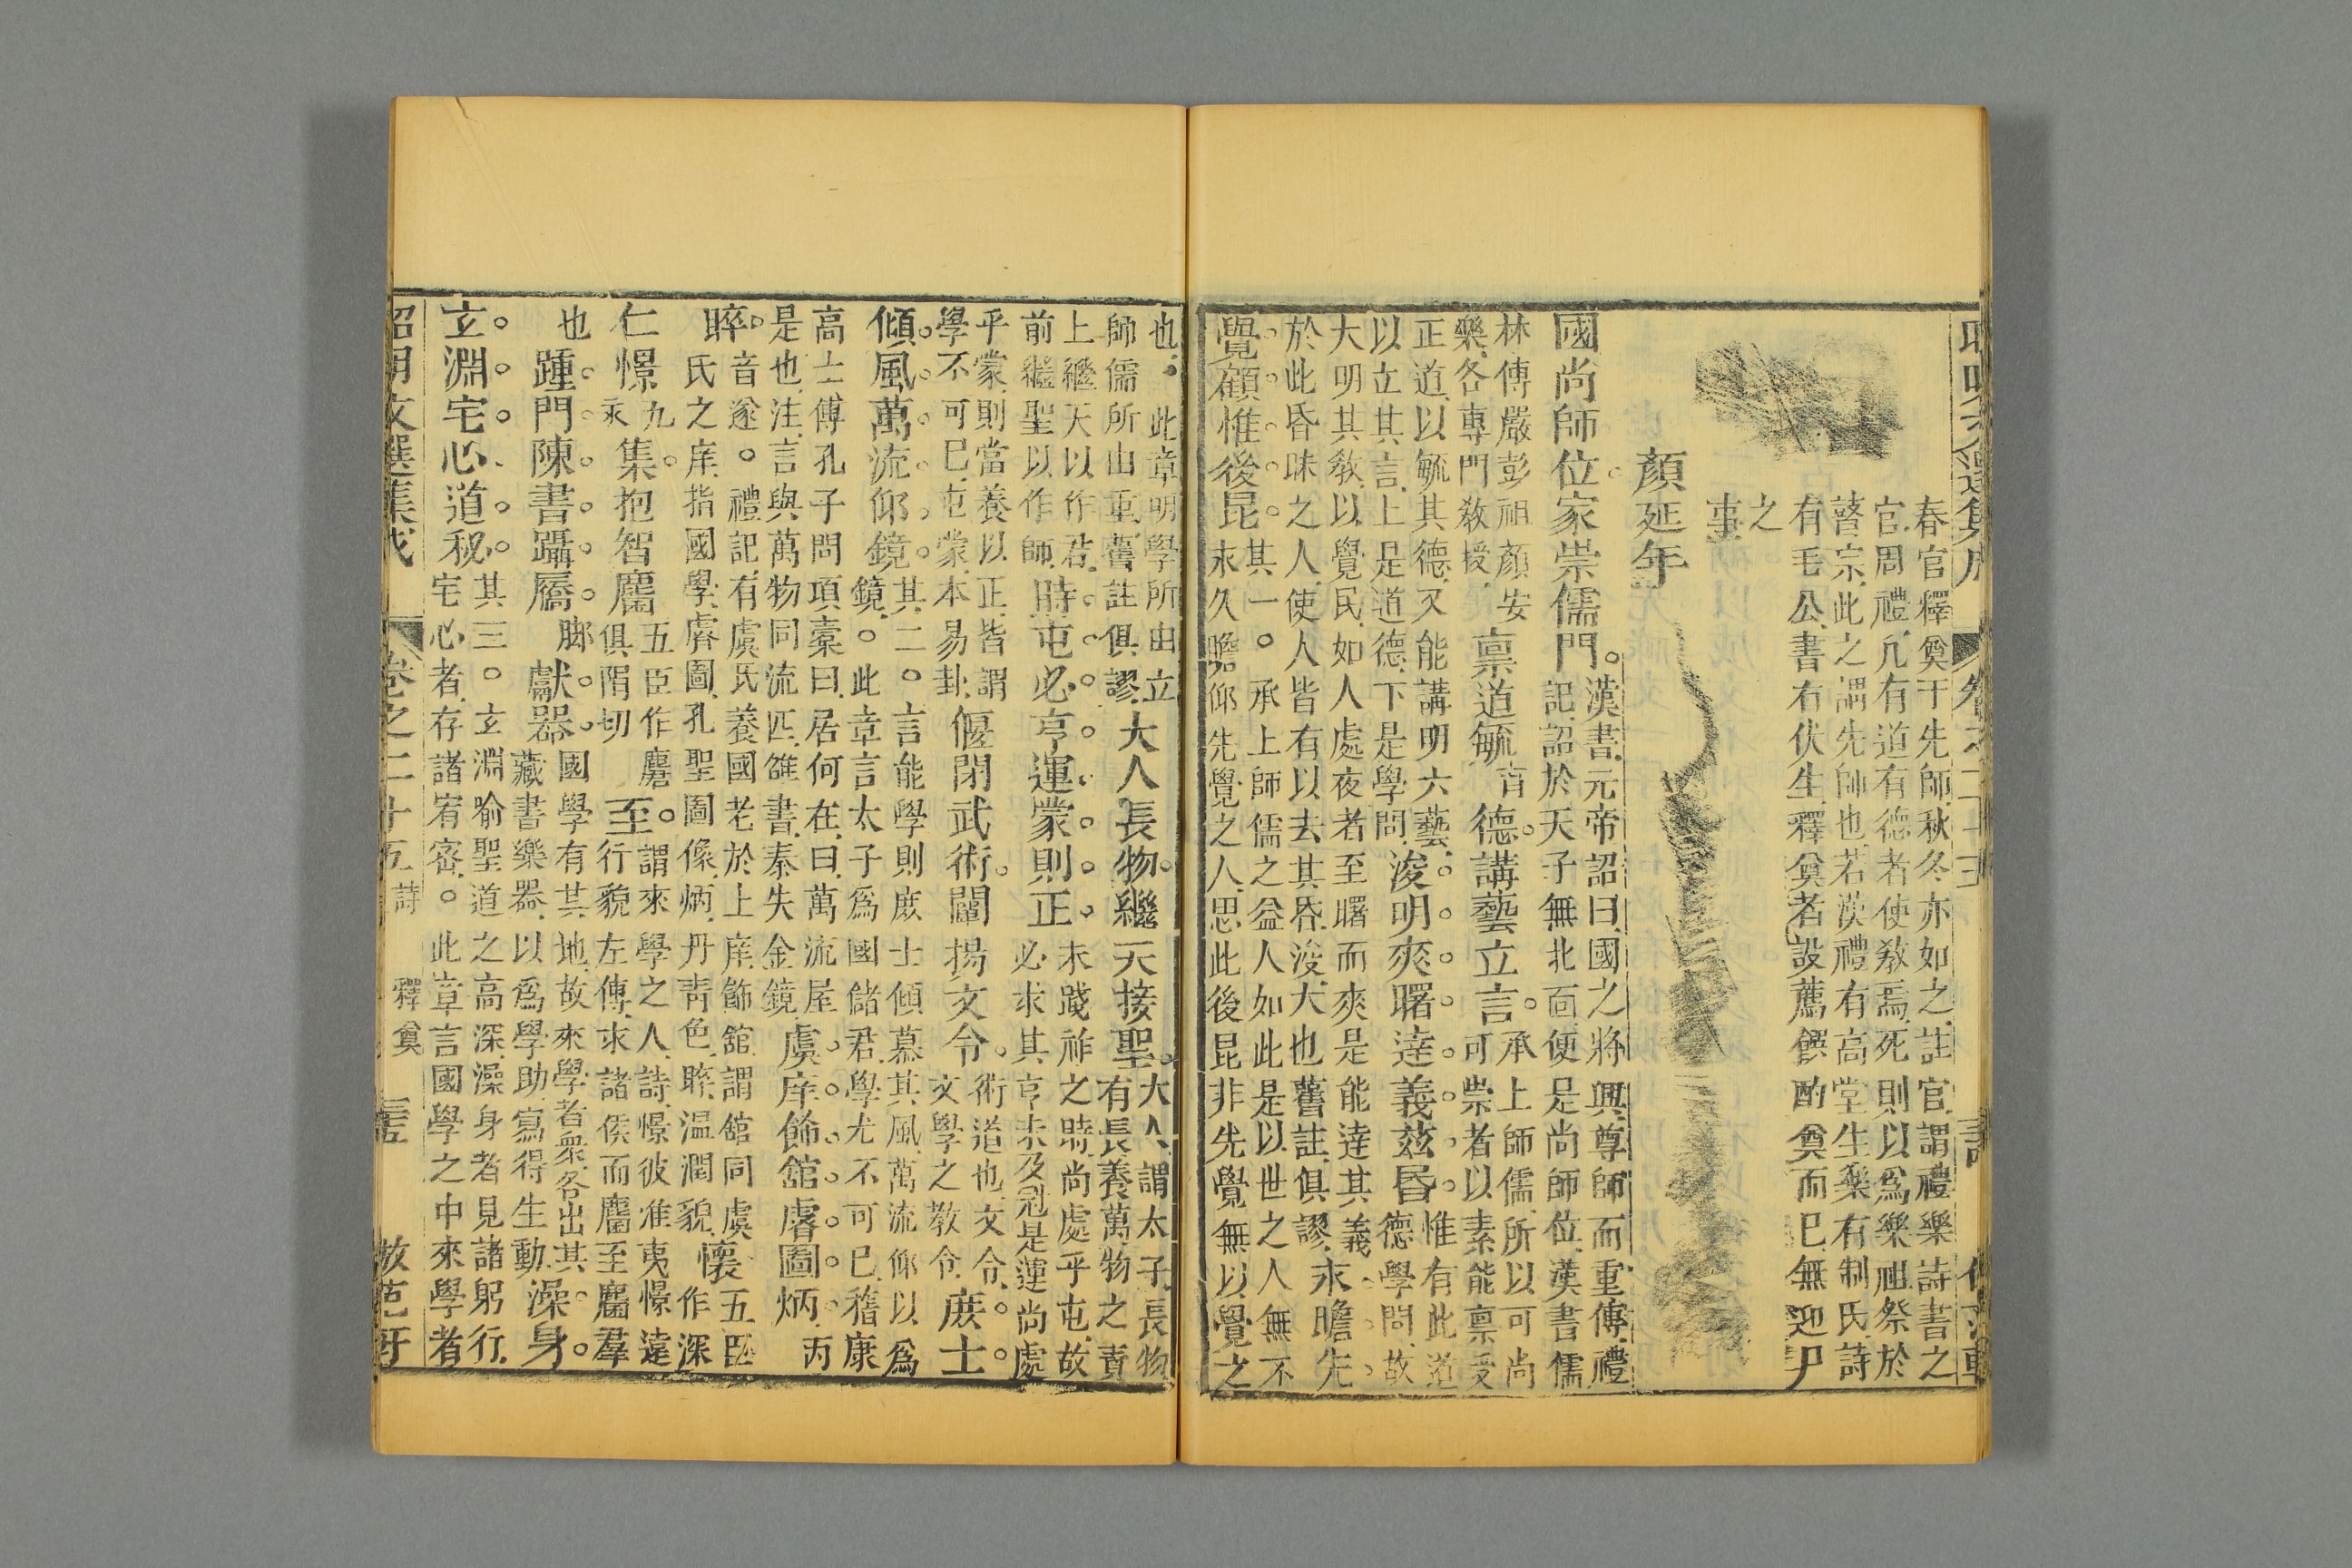 昭明文選集成 卷之二十五 詩
春官釋奠于先師秋冬亦如之註官謂禮樂詩書之
官周禮凡有道有德者使敎焉死則以爲樂祖祭於
瞽宗此之謂先師也若漢禮有高堂生樂有制氏詩
有毛公書有伏生釋奠者設薦饌酌奠而已無迎尸
之
事
顏延年
國尚師位家崇儒門
漢書元帝詔曰國之將興尊師而重傅禮
記詔於天子無北面便是尚師位漢書儒
林傳嚴彭祖顏安
樂各專門敎授
禀道毓
育
德講藝立言
承上師儒所以可尚
可崇者以素能禀受
正道以毓其德又能講明六藝
以立其言上是道德下是學問
浚明爽曙達義茲昏
惟有此道
德學問故
大明其敎以覺民如人處夜者至曙而爽是能達其義
於此昏昧之人使人人皆有以去其昏浚大也舊註俱謬
永瞻先
覺顧惟後昆
其一○承上師儒之益人如此是以世之人無不
永久瞻仰先覺之人思此後昆非先覺無以覺之
也○此章明學所由立
師儒所由重舊註俱謬
大人長物繼天接聖
大人謂太子長物
有長養萬物之責
上繼天以作君
前繼聖以作師
時屯必亨運蒙則正
未踐祚之時尚處乎屯故
必求其亨未及冠是運尚處
乎蒙則當養以正皆謂
學不可已屯蒙本易卦
偃閉武術闡揚文令
術道也文令
文學之敎令
庶士
傾風萬流仰鏡
其二○言能學則庶士傾慕其風萬流仰以爲
鏡○此章言太子爲國儲君學尤不可已嵇康
高士傳孔子問項橐曰居何在曰萬流屋
是也注言與萬物同流匹雒書秦失金鏡
虞庠飾館睿圖炳
丙
睟
音遂○禮記有虞氏養國老於上庠飾館謂館同虞
氏之庠指國學睿圖孔聖圖像炳丹靑色睟温潤貌
懷
五臣
作深
仁憬
九
永
集抱智麕
五臣作麏
俱隕切
至
謂來學之人詩憬彼淮夷憬遠
行貌左傳求諸侯而麕至麕羣
也
踵門陳書躡屩
脚
獻器
國學有其地故來學者衆各出其
藏書樂器以爲學助寫得生動
澡身
玄淵宅心道秘
其三○玄淵喻聖道之高深澡身者見諸躬行
宅心者存諸宥密○此章言國學之中來學者
昭明文選集成 卷之二十五 詩 釋奠